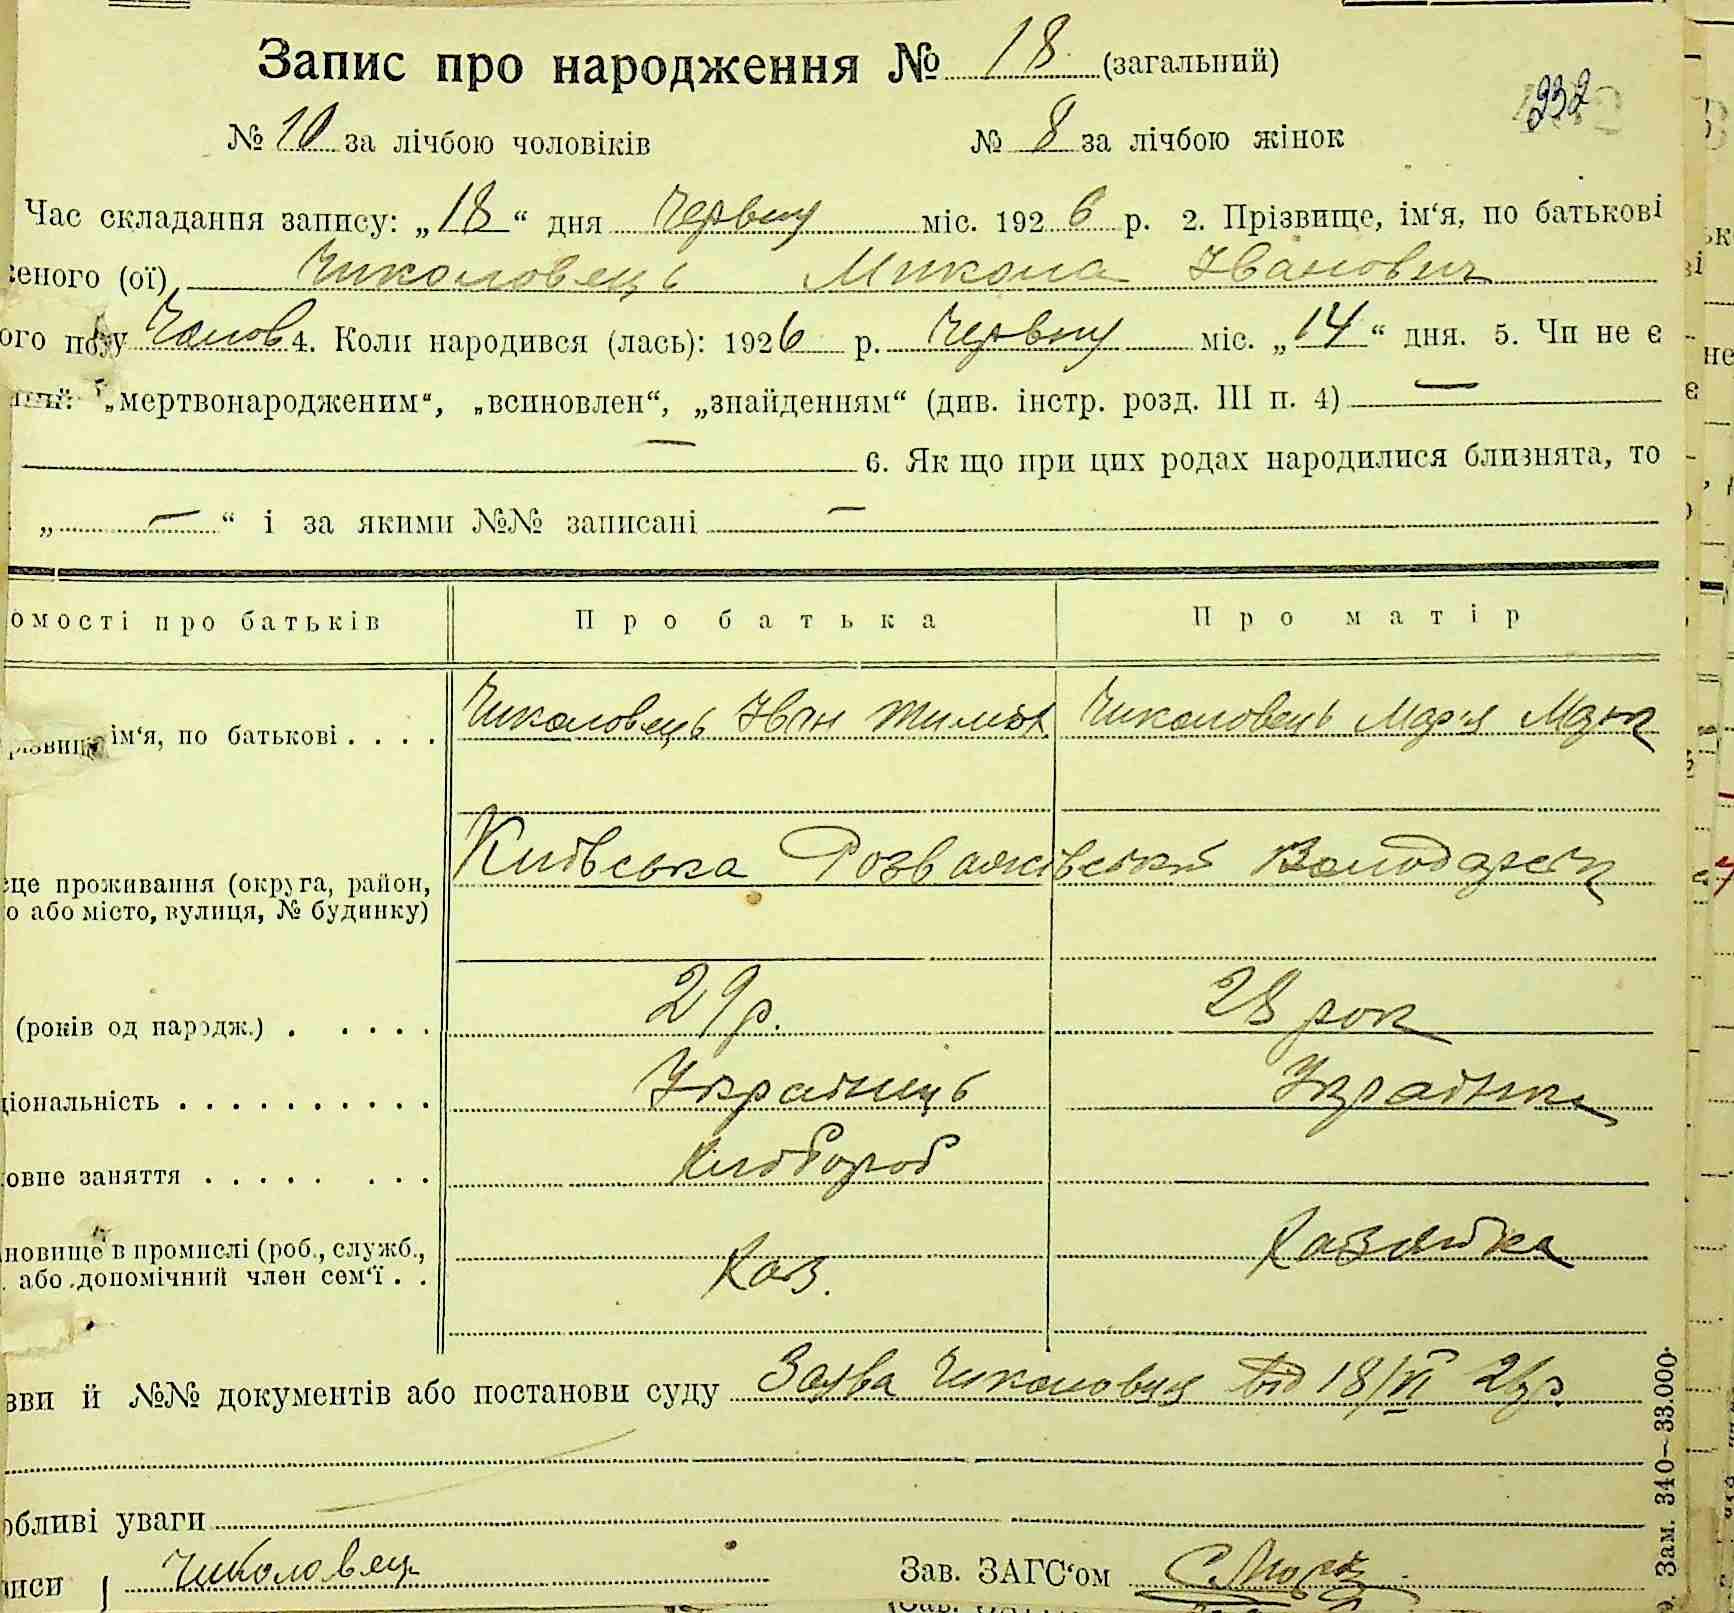 Запис про народження № 18 (загальний)
232
№ 10 за лічбою чоловіків № 8 за лічбою жінок
Час складання запису: „18“ дня Червня міс. 1926 р. 2. Прізвище, ім‘я, по батькові
еного (ої) Чиколовець Микола Іванович
ого полу Чолов 4. Коли народився (лась): 1926 р. Червня міс. „14“ дня. 5. Чи не є
„мертвонародженим“, „всиновлен“, „знайденням“ (див. інстр. розд. III п. 4) —
— 6. Як що при цих родах народилися близнята, то
„ — “ і за якими №№ записані —
омості про батьків Про батька Про матір
різвище ім‘я, по батькові . . . . Чиколовець Іван Чиколовець Мар‘я
це проживання (округа, район, Київська Розважівський Володарськ
о або місто, вулиця, № будинку)
(років од народж.) . . . . . 29 р. 28 рок
ціональність . . . . . . . . . . Українець Українка
овне заняття . . . . . . . . Хлібороб
новище в промислі (роб., служб., Хазяйка
або допомічний член сем‘ї . . Хаз.
зви й №№ документів або постанови суду Заява Чиколовця від 18/VI 26 р.
обливі уваги
иси Чиколовець Зав. ЗАГС‘ом
Зам. 340—33.000.